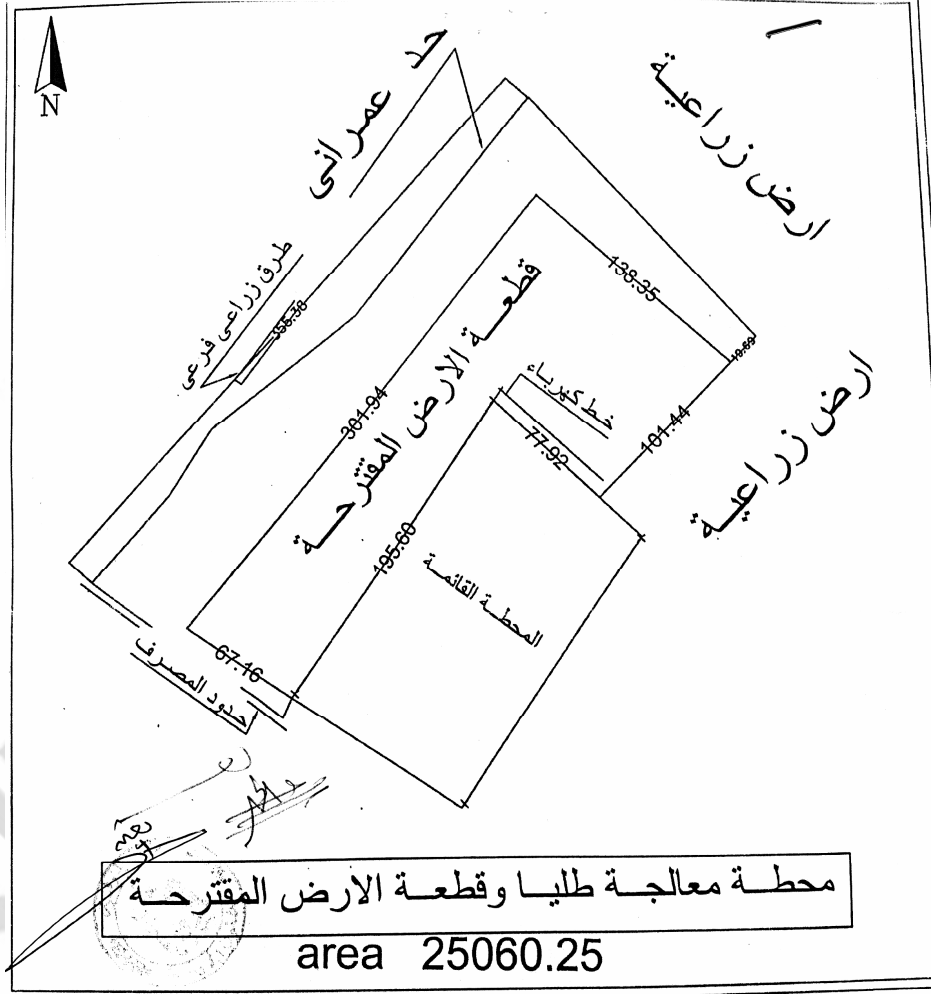 N
حد عمرانى
ارض زراعية
طرق زراعى فرعى
355.38
138.35
قطعة الارض المقترحة
301.94
خط كهرباء
77.92
101.44
ارض زراعية
195.60
المحطة القائمة
67.16
حدود المصرف
محطة معالجة طليا وقطعة الارض المقترحة
area 25060.25